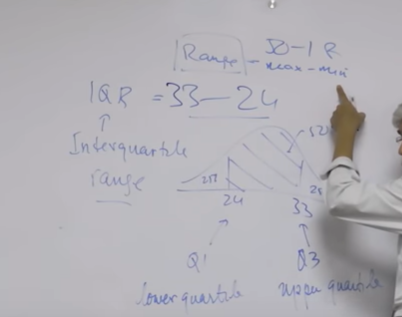 50-1 R
Range - max-min
IQR = 33-24
Interquartile
range
25%
24
33
Q1
Q3
lower quartile
upper quartile